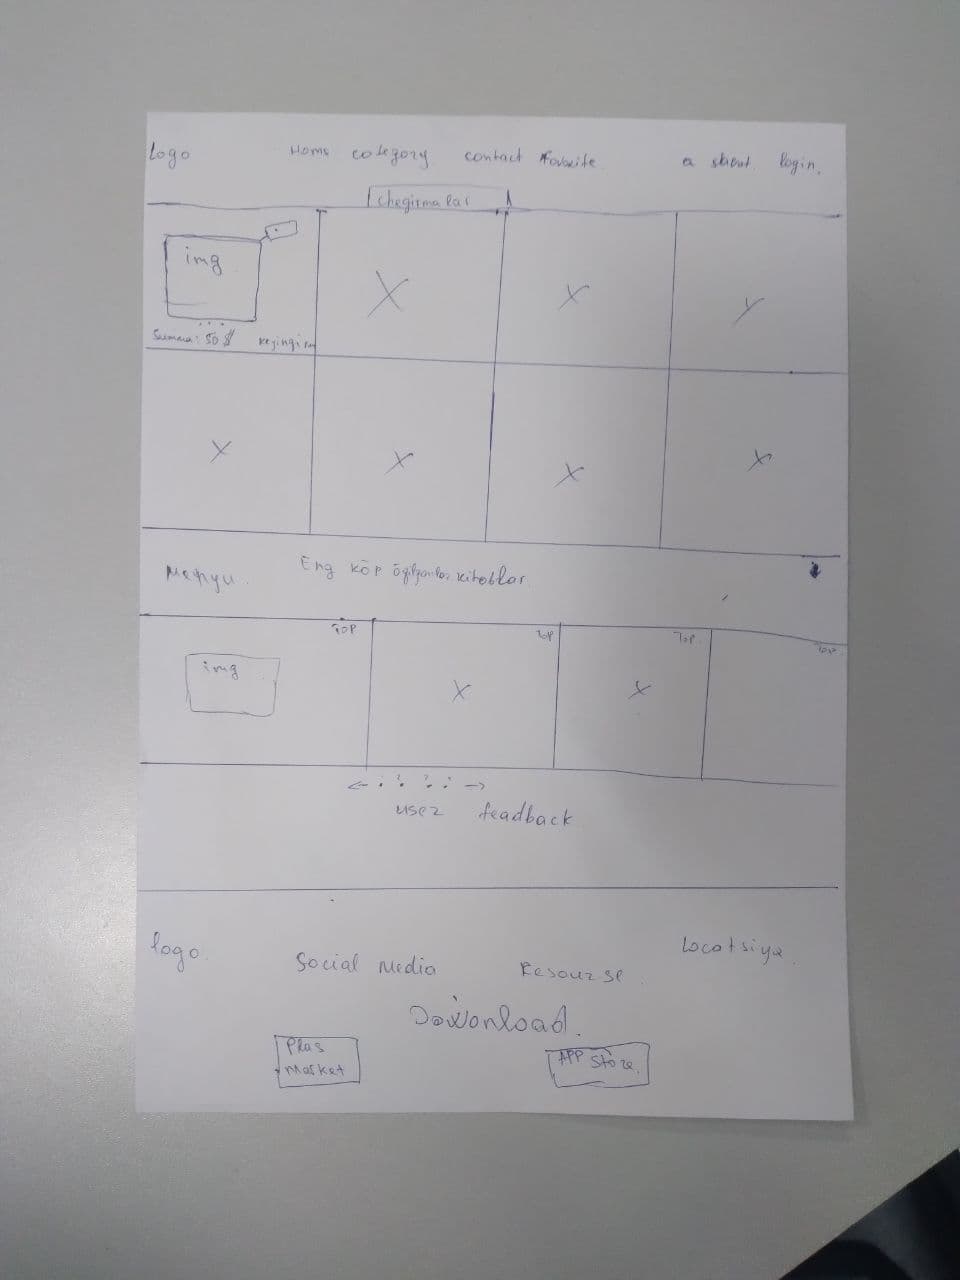 logo Home category contact Favorite about login
chegirmalar
img
Summa: 50 $
X X Y
X X X X
Menyu Eng köp
kitoblar
TOP TOP TOP TOP
img
X X
user feadback
logo Social Media Resourse Locatsiya
Download
Plas
market
APP Store